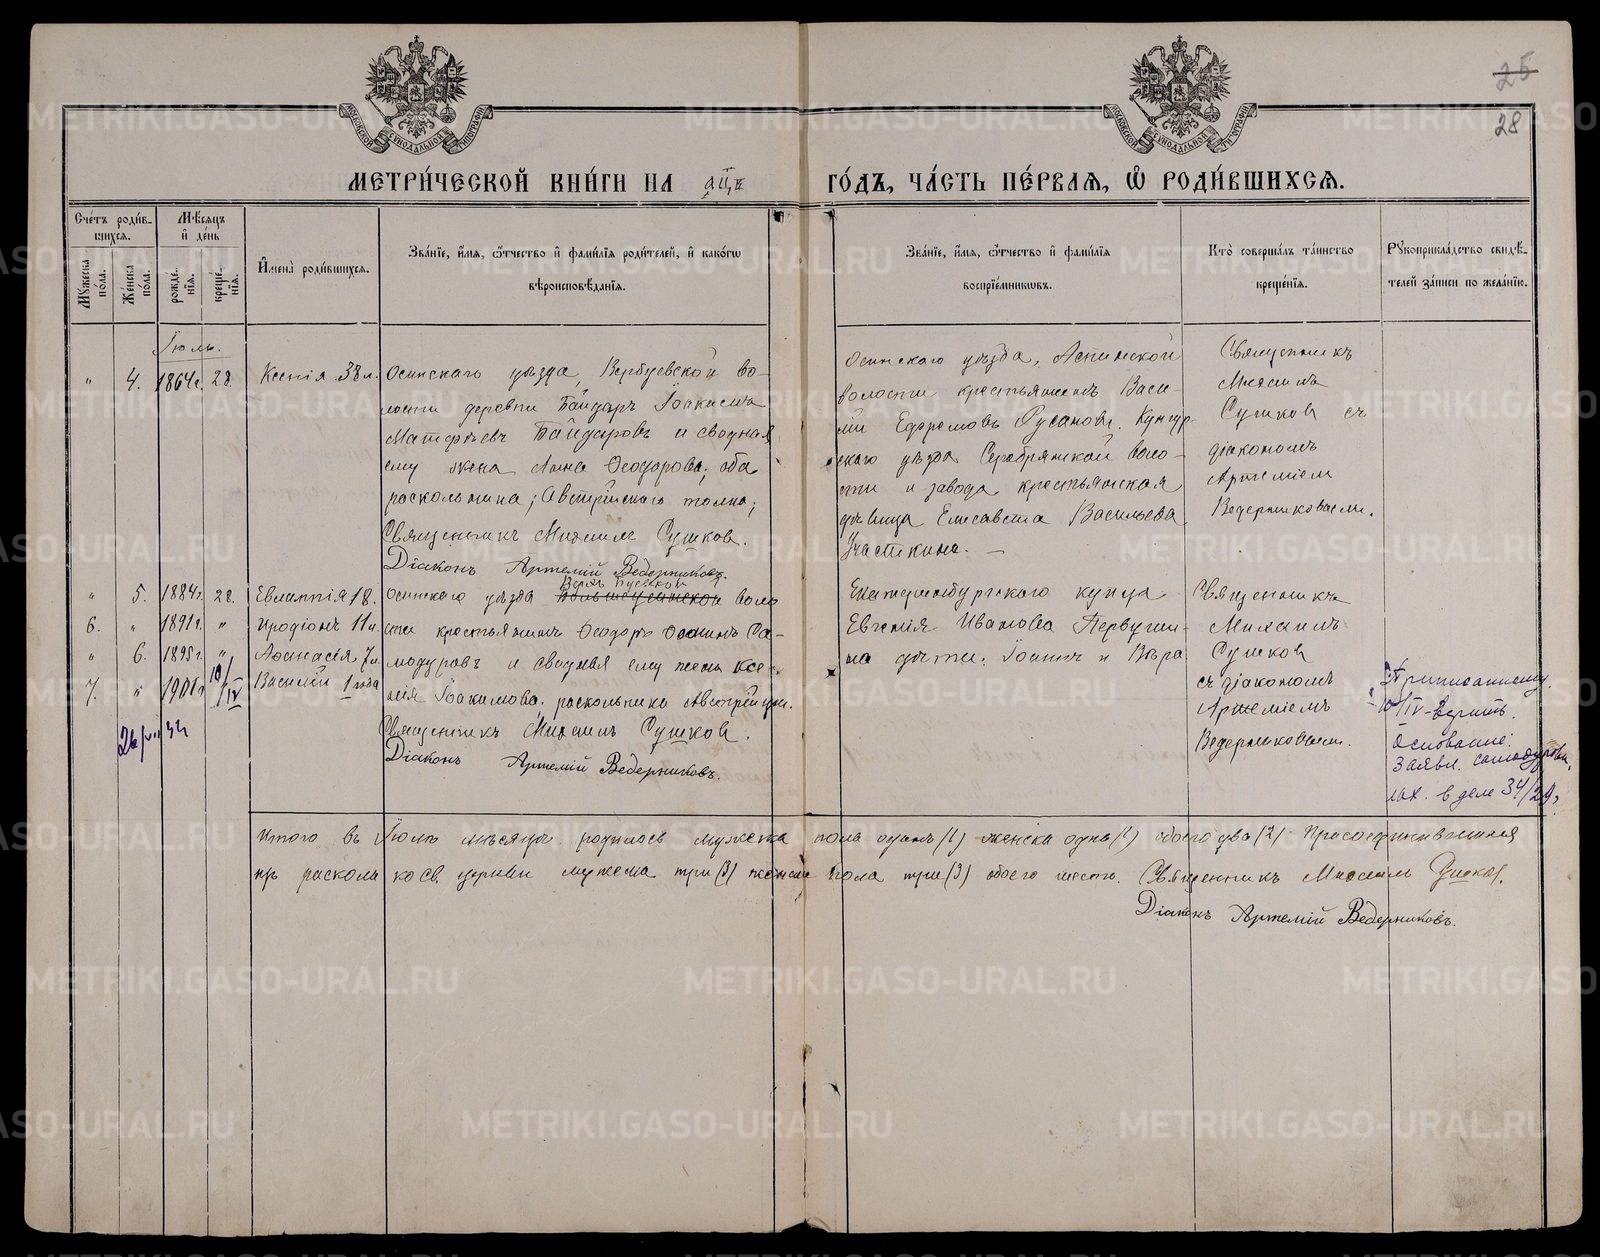 25
28
МЕТРИ́ЧЕСКОЙ КНИ́ГИ НА ҂АЦВ ГО́ДЪ, ЧА́СТЬ ПЕ́РВАЯ, Ѽ РОДИ́ВШИХСЯ.
Сче́тъ роди́вшихся.
Мꙋ́жеска по́ла.
Же́нска по́ла.
Мѣ́сяцъ и҆ де́нь
рожде́нїя.
креще́нїя.
И҆мена̀ роди́вшихся.
Зва́нїе, и҆́мя, ѻ҆́тчество и҆ фами́лїя роди́телей, и҆ како́гѡ
вѣроисповѣ́данїя.
Зва́нїе, и҆́мя, ѻ҆́тчество и҆ фами́лїя
воспрїе́мникѡвъ.
Кто̀ соверша́лъ та́инство
креще́нїя.
Рꙋкоприкла́дство свидѣ́-
телей за́писи по жела́нїю.
Іюль.
" 4. 1864г. 28. Ксенія 38 л.
Осинскаго уѣзда, Верхбуевской во-
лости деревни Байдаръ Іоакимъ
Матфѣевъ Байдаровъ и сводная
ему жена Анна Ѳеодорова, оба
раскольника; Австрійскаго толка;
Священникъ Михаилъ Сушковъ.
Діаконъ Артемій Ведерниковъ.
Осинскаго уѣзда, Аспинской
волости крестьянинъ Васи-
лій Ефремовъ Русановъ. Кунгур-
скаго уѣзда Серебрянской воло-
сти и завода крестьянская
дѣвица Елисавета Васильева
Участкина. —
Священникъ
Михаилъ
Сушковъ съ
діакономъ
Артеміем
Ведерниковымъ.
" 5. 1884г. 28. Евлампія 18.
6. " 1891г. " Иродіонъ 11 л.
" 6. 1895г. " Аѳанасія 7 л.
7. " 1901г. 10/IV Василій 1 года
26/VII 34
Осинскаго уѣзда воло
сти крестьянинъ Ѳеодоръ Сa-
модуровъ и сводная ему жена Ксе-
нія Іоакимова, раскольники Австрійцы.
Священникъ Михаилъ Сушковъ.
Діаконъ Артемій Ведерниковъ.
Екатеринбургскаго купца
Евгенія Иванова Первуши-
на дѣти: Іоаннъ и Вѣра
Священникъ
Михаилъ
Сушковъ
съ діакономъ
Артеміемъ
Ведерниковымъ.
Приписанному
10/IV верить.
Основание:
Заявл. Самодурова,
нах. в деле 34/29г
Итого въ Іюлѣ мѣсяцѣ родилось мужеска пола одинъ (1) женска одна (1) обоего два (2) Присоединившихся
изъ раскола ко св. церкви мужеска три (3) женска пола три (3) обоего шесть. Священникъ Михаилъ Сушковъ.
Діаконъ Артемій Ведерниковъ.
METRIKI.GASO-URAL.RU